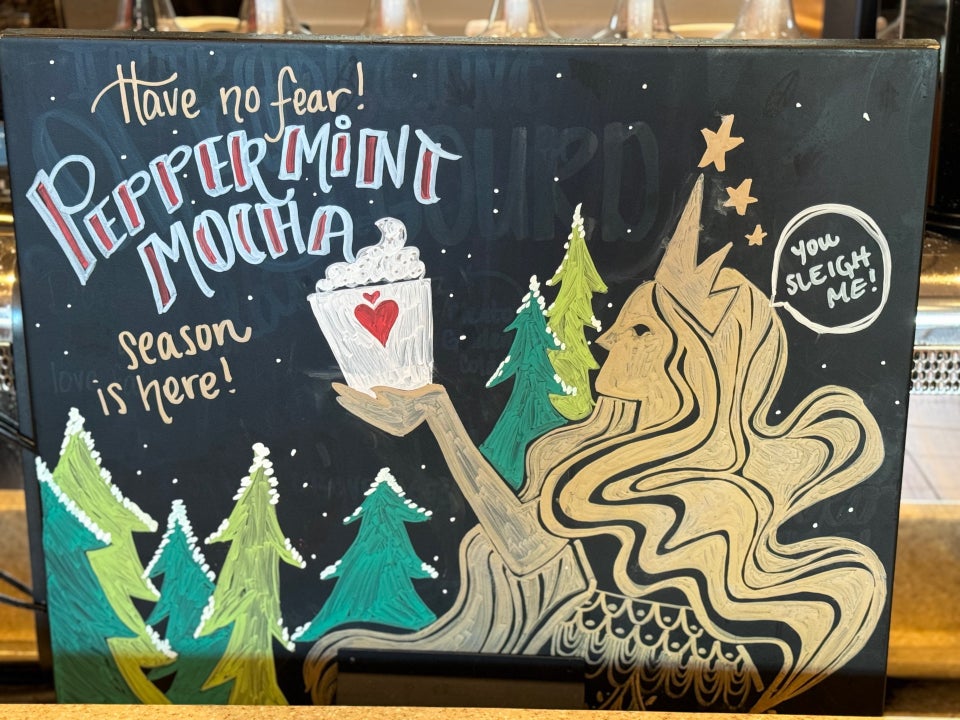 Have no fear!
PEPPERMINT
MOCHA
season
is here!
YOU
SLEIGH
ME!